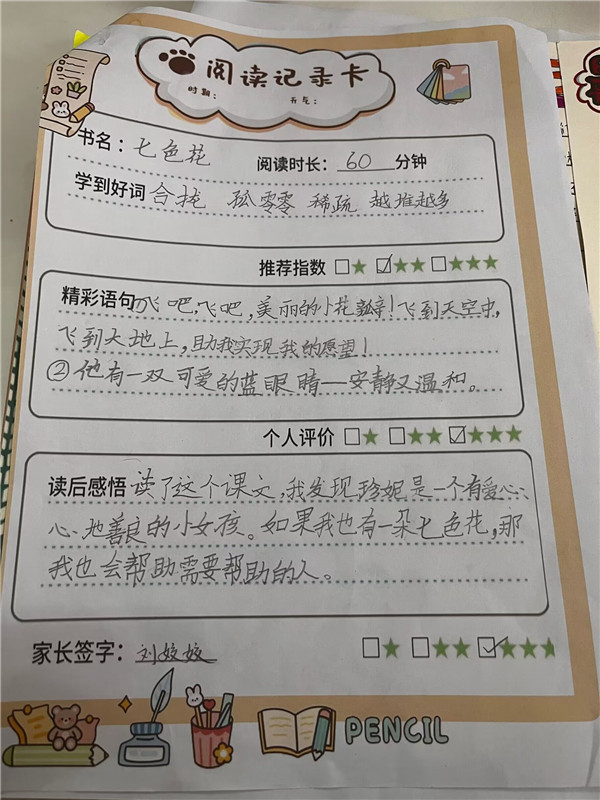 阅读记录卡
时期： 天气：
书名：七色花 阅读时长：60分钟
学到好词 合拢 孤零零 稀疏 越堆越多
推荐指数 □★ ☑★★ □★★★
精彩语句 ①飞吧，飞吧，美丽的小花瓣！飞到天空中，
飞到大地上，助我实现我的愿望！
②他有一双可爱的蓝眼睛——安静又温和。
个人评价 □★ □★★ ☑★★★
读后感悟 读了这个课文，我发现珍妮是一个有爱心、
心地善良的小女孩。如果我也有一朵七色花，那
我也会帮助需要帮助的人。
家长签字：刘姣姣 □★ □★★ ☑★★★
PENCIL